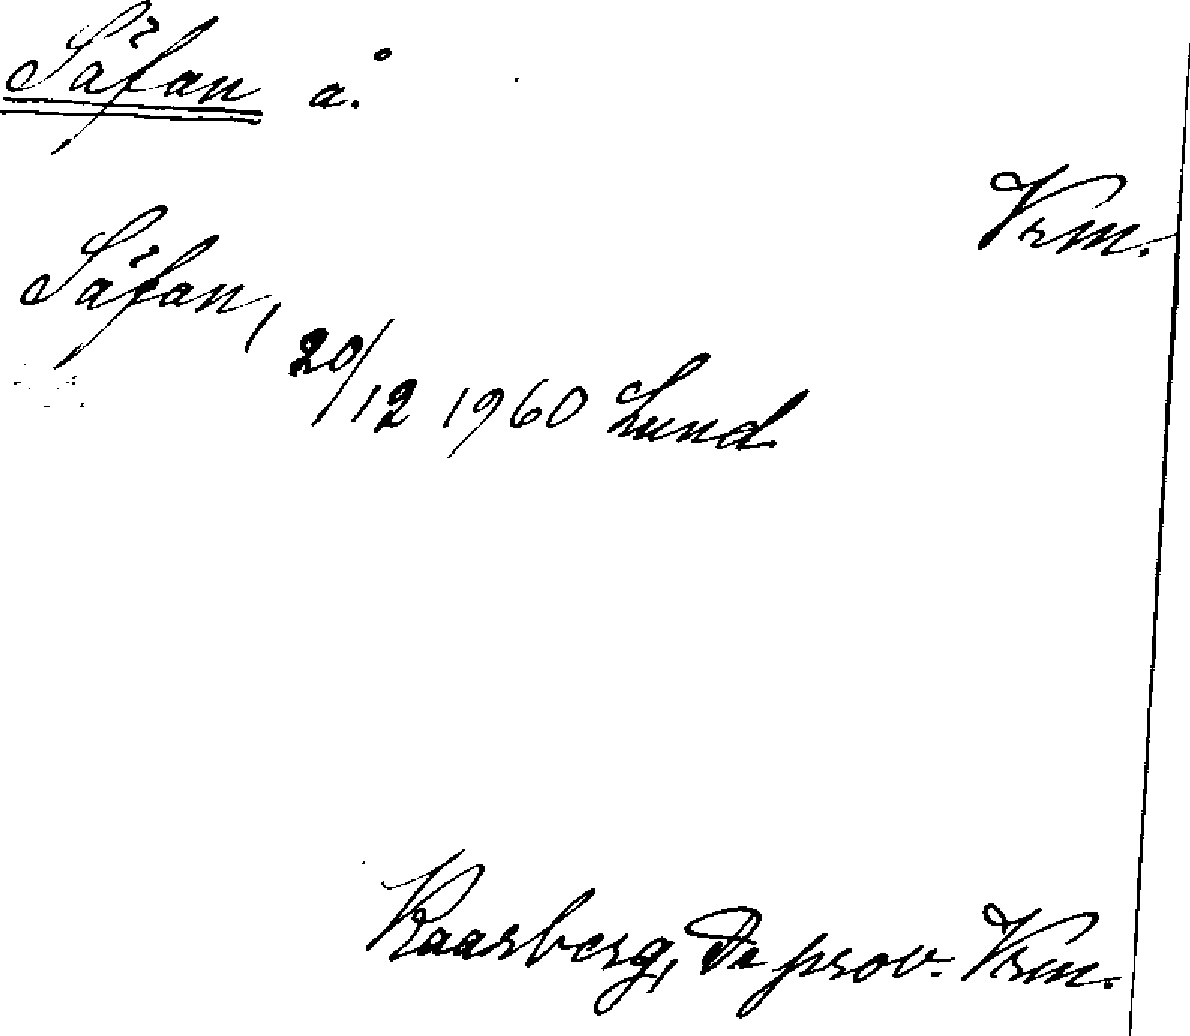 Säfan å.
Vrm.
Säfan, 20/12 1960 Lund
Kaarberg, De prov. Vrm.